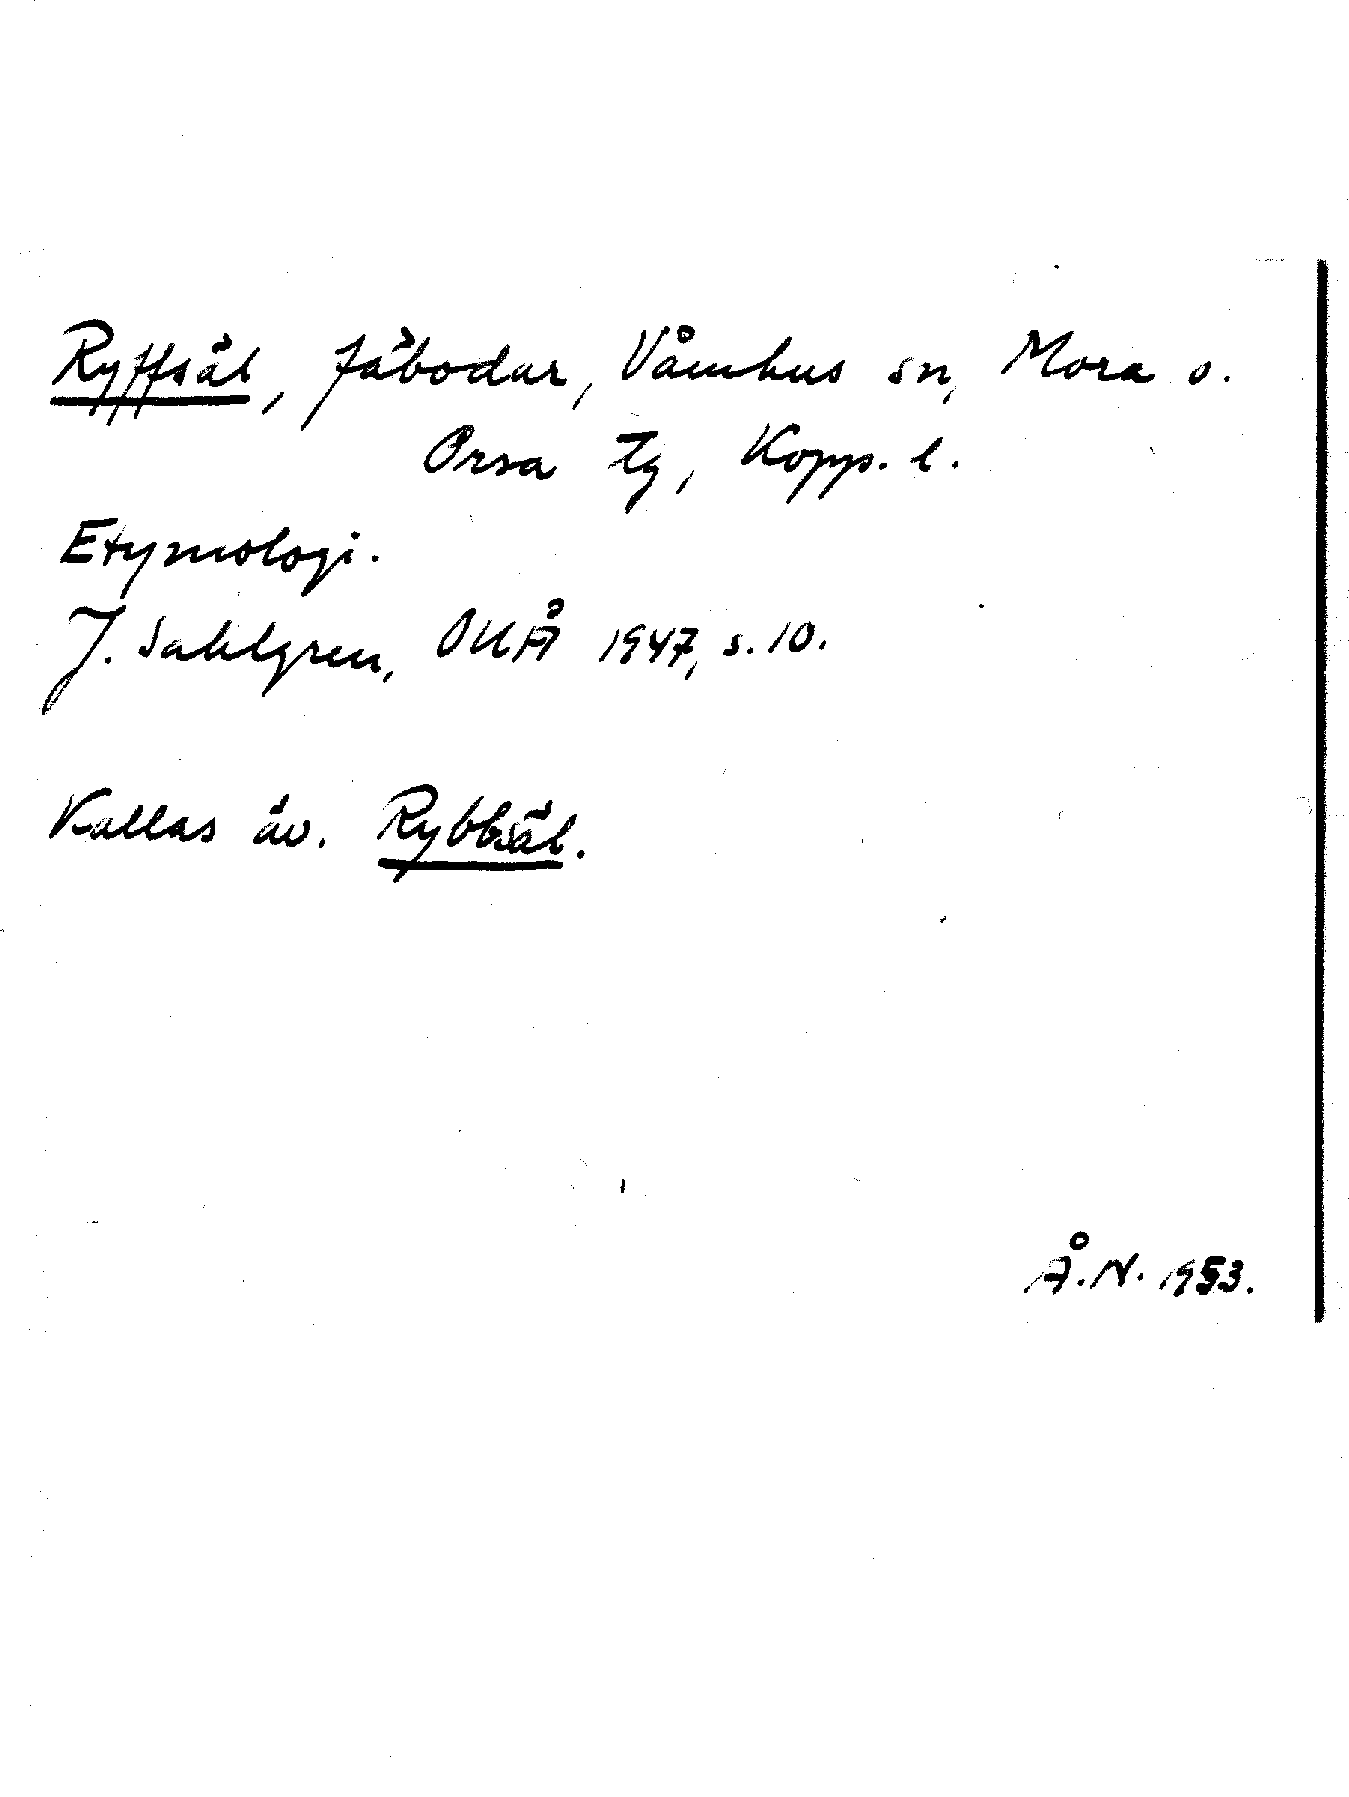 Ryffsäl, fäbodar, Våmhus sn, Mora o.
Orsa tg, Kopp. l.
Etymologi.
J. Sahlgren, OUÅ 1947, s. 10.
Kallas äv. Rybbsäl.
Å. N. 1953.